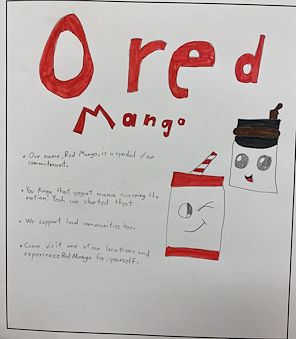 O red
Mango
• Our name, Red Mango, is a symbol of our
commitment.
• You know that yogurt mania sweeping the
nation? Yeah we started that
• We support local communities too.
• Come visit one of our locations and
experience Red Mango for yourself.